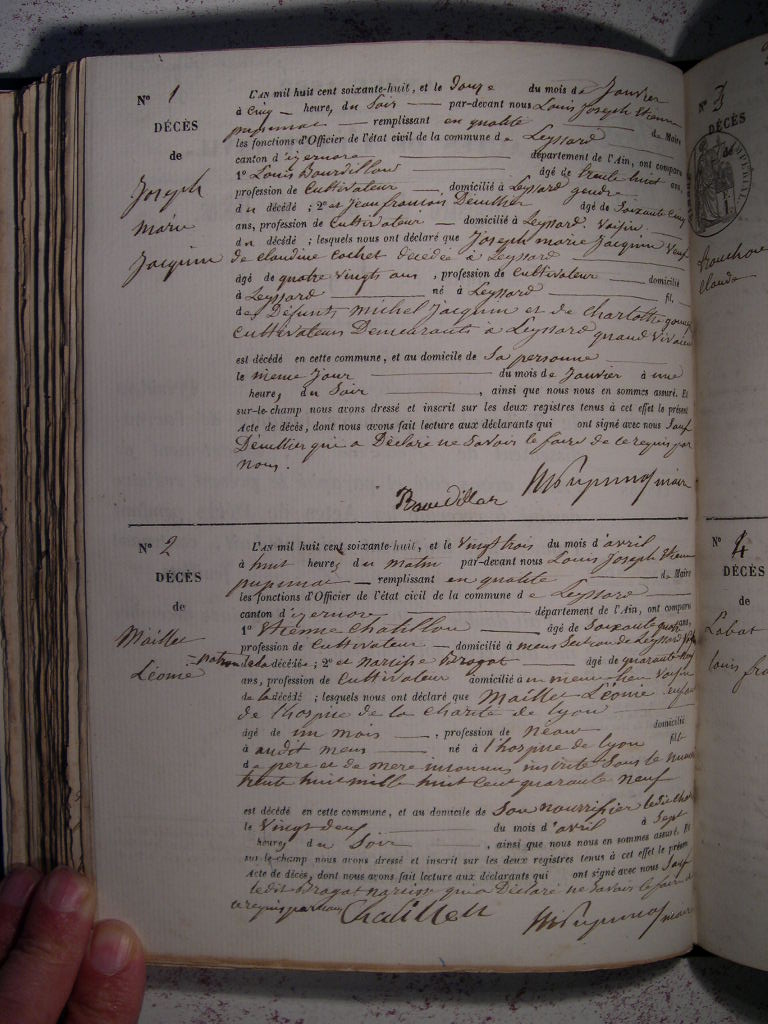 N° 1
DÉCÈS
de
Joseph
marie
Jacquin
L'AN mil huit cent soixante-huit, et le Douze du mois de Janvier
à Cinq heure, du Soir par-devant nous Louis Joseph Etienne
remplissant en qualité de Maire
les fonctions d'Officier de l'état civil de la commune de Leyssard
canton d'izernore département de l'Ain, ont comparu
1° Louis Bourdillon âgé de trente huit ans,
profession de Cultivateur domicilié à Leyssard gendre
du décédé ; 2° et Jean francois âgé de Soixante Cinq
ans, profession de Cultivateur domicilié à Leyssard. Voisin
du décédé ; lesquels nous ont déclaré que Joseph marie Jacquin Veuf
de claudine Cochet décédée à Leyssard
âgé de quatre Vingts ans, profession de Cultivateur domicilié
à Leyssard né à Leyssard fil,
des Défunts michel Jacquin et de Charlotte
Cultivateurs Demeurants à Leyssard quand Vivaient
est décédé en cette commune, et au domicile de Sa personne
le meme Jour du mois de Janvier à une
heure, du Soir, ainsi que nous nous en sommes assuré. Et
sur-le-champ nous avons dressé et inscrit sur les deux registres tenus à cet effet le présent
Acte de décès, dont nous avons fait lecture aux déclarants qui ont signé avec nous Sauf
qui a Déclaré ne Savoir le faire de ce requis par
nous.
Bourdillon maire
N° 2
DÉCÈS
de
Maillet
Léonie
L'AN mil huit cent soixante-huit, et le Vingt trois du mois d'avril
à huit heures du matin par-devant nous Louis Joseph Etienne
remplissant en qualité de Maire
les fonctions d'Officier de l'état civil de la commune de Leyssard
canton d'izernore département de l'Ain, ont comparu
1° Etienne Chatillon âgé de Soixante quatre ans,
profession de Cultivateur domicilié à mens Section de Leyssard
patron de la décédée ; 2° et narcisse Brogat âgé de quarante
ans, profession de Cultivateur domicilié à un meme lieu Voisin
de la décédé ; lesquels nous ont déclaré que Maillet Léonie enfant
de l'hospice de la Charité de lyon
âgé de un mois, profession de Néant domicilié
à audit mens né à l'hospice de lyon fil
de père et de mere inconnus inscrite Sous le numero
trente huit mille huit Cent quarante neuf
est décédé en cette commune, et au domicile de Son nourrissier ledit Chatillon
le Vingt deux du mois d'avril à Sept
heures, du Soir, ainsi que nous nous en sommes assuré. Et
sur-le-champ nous avons dressé et inscrit sur les deux registres tenus à cet effet le présent
Acte de décès, dont nous avons fait lecture aux déclarants qui ont signé avec nous Sauf
ledit Brogat narcisse qui a Déclaré ne Savoir le faire de
ce requis par nous Chatillon maire
N° 3
DÉCÈS
de
claude
N° 4
DÉCÈS
de
Labat
louis